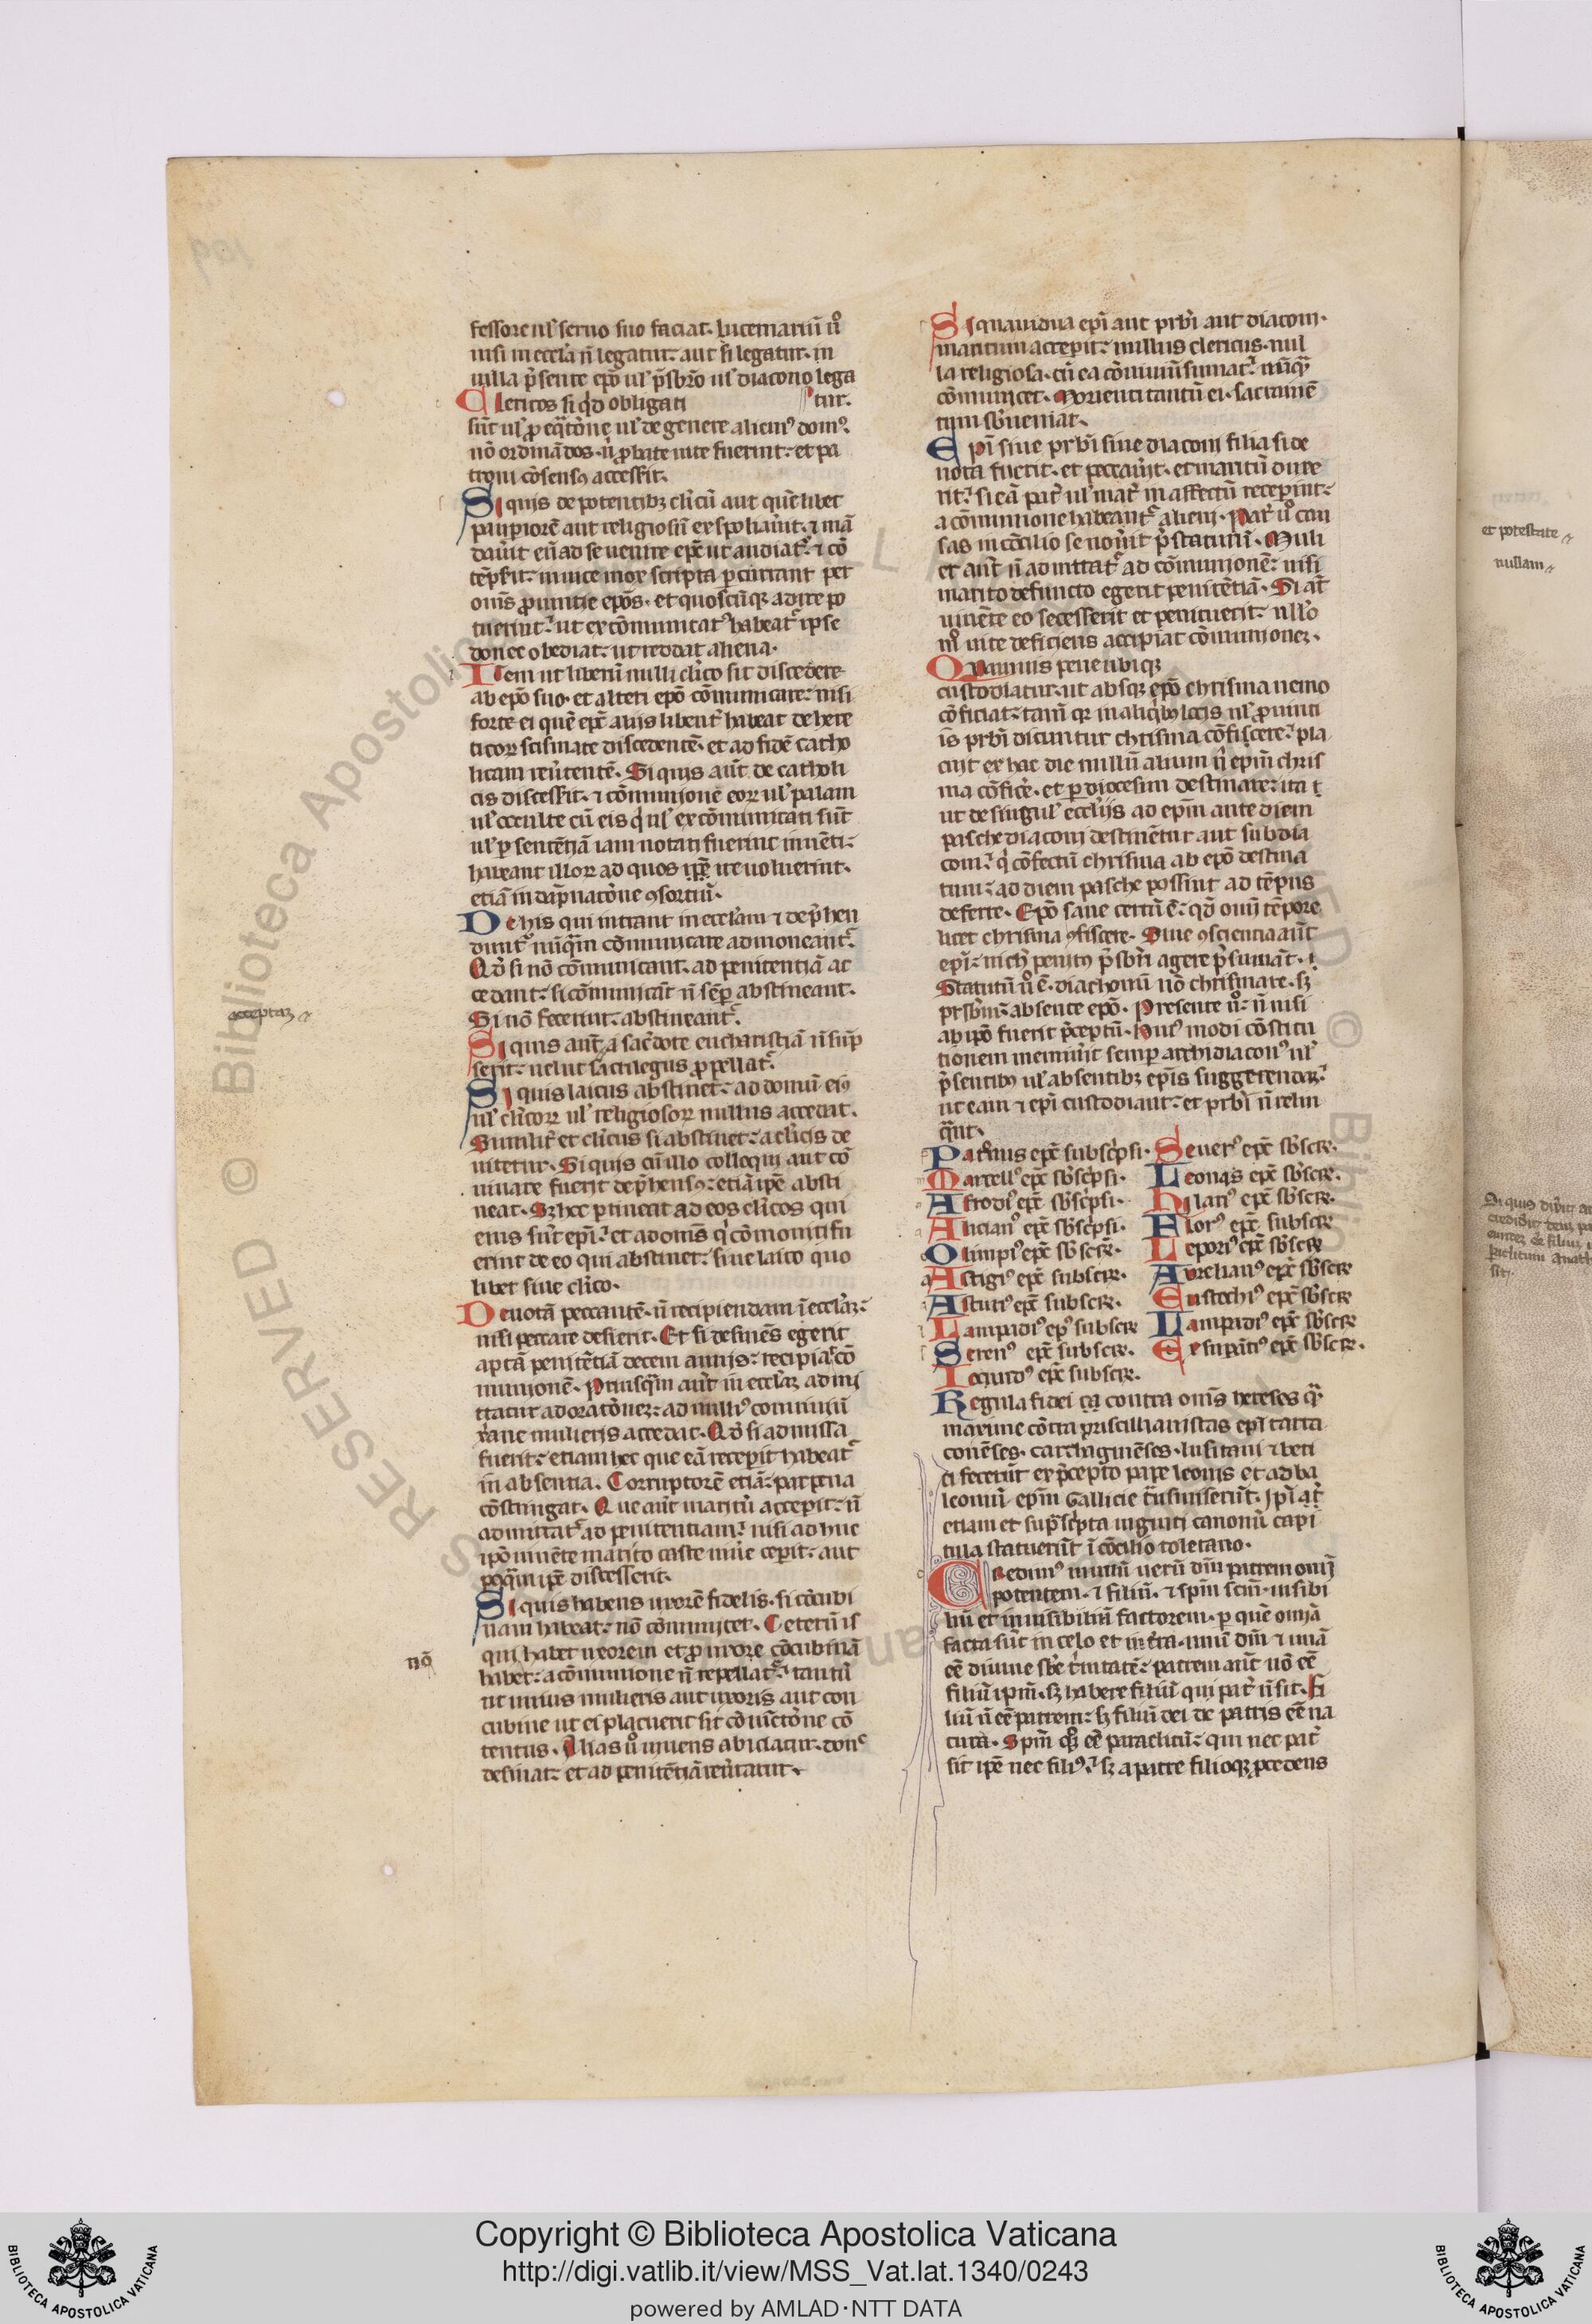 fessore ul' seruo suo faciat. lucernariū ū͛
nisi in eccl̄a n̄ legatur: aut si legatur. in
uilla p̄sente ep̄o ul' p̄sbr̄o ul' diacono lega
Clericos si qd̄ obligati tur.
sūt ul' ꝓ eq̄tōne ul' de genere alicui᷒ dom᷒.
nō ordinādos. n̄ ꝓbate uite fuerint: et pa
troni cōsens᷒ accessit.
Si quis de potentibꝫ cl'icū aut quēlibet
paupiorē aut religiosū exspoliau'it. ⁊ mā
dau'it eū ad se uenire ep̄c ut audiat᷑. ⁊ cō
tēpsit: inuice mox scripta ꝑcurrant per
om̄s ꝓuintie ep̄os. et quoscūqꝫ adire po
tuerint: ut excōmunicat᷒ habeat᷑ ipse
donec obediat: ut reddat aliena.
Item ut liberū nulli cl'ico sit discedere
ab ep̄o suo. et alteri ep̄o cōmunicare: nisi
forte ei quē ep̄c aui͛s libent' habeat de here
ticoꝝ scismate discedentē. et ad fidē catho
licam reu'tentē. Si quis aūt de catholi
cis discessit. ⁊ cōmunionē eoꝝ ul' palam
ul' occulte cū eis q' ul' excōmunicati sūt
ul' ꝑ sentētiā iam notati fuerint inuēti:
habeant illoꝝ ad quos ip̄e ire uoluerint.
etiā in dāpnatōne ꝯsortiū.
De his qui intrant in eccl'am ⁊ dep'hen
dunt᷑ nūq̄m cōmunicare admoneant᷑.
Qd̄ si nō cōmunicant. ad penitentiā ac
cedant: si cōmunicāt n̄ sēꝑ abstineant.
Si nō fecerint: abstineant᷑.
Si quis aūt a sac'dote eucharistiā n̄ sūp
serit: uelut sacrilegus ꝓpellat᷑.
Si quis laicus abstinet: ad domū ei᷒
ul' cl'icoꝝ ul' religiosoꝝ nullus accedat.
Similit' et cl'icus si abstinet: a cl'icis de
uitetur. Si quis cū illo colloqui aut cō
uiuare fuerit dep'hens᷒: etiā ip̄e absti
neat. Sꝫ hec ꝑtineat ad eos cl'icos qui
eius sūt ep̄i: et ad om̄s q' cōmoniti fu
erint de eo qui abstinet: siue laico quo
libet siue cl'ico.
Deuotā peccantē. n̄ recipiendam ī eccl'aꝫ:
nisi peccare desierit. Et si desinēs egerit
aptā penitētiā decem annis: recipiat᷑ cō
munionē. Priusq̄m aūt in eccl'aꝫ admi
ttatur ad oratōneꝫ: ad nulli᷒ conuiuiū
x'ane mulieris accedat. Qd̄ si admissa
fuerit: etiam hec que eā receperit habeat᷑
in absentia. Corruptorē etiā: par pena
cōstringat. Que aūt maritū acceperit: n̄
admittat᷑ ad penitentiam: nisi adhuc
ipō uiuēte marito caste uiu'e ceperit: aut
postq̄m ip̄e discesserit.
Si quis habens uxorē fidelis. si cōcubi
nam habeat: nō cōmunicet. Ceterū is
qui habet uxorem et ꝓ uxore cōcubinā
habet: a cōmunione n̄ repellat᷑: tantū
ut unius mulieris aut uxoris aut con
cubine ut ei placuerit sit cōiūctōne cō
tentus. Alias ū͛ uiuens abiciatur. donc
desinat: et ad penitētiā reu'tatur.
acceptaꝫ
nō
Si qua uidua ep̄i aut prb'i aut diaconi.
maritum acceperit: nullus clericus. nul
la religiosa. cū ea cōuiuiū sumat: nūq̄
cōmunicet. Morienti tantū ei. sacramē
tum sb'ueniat.
Epī siue prb'i siue diaconi filia si de
uota fuerit. et peccau'it. et maritū duxe
rit: si eā pat' ul' mat' in affectū receperint:
a cōmunione habeant᷑ alieni. Pat' ū͛ cau
sas in cōcilio se nou'it p̄staturū. Muli
er aūt n̄ admittat᷑ ad cōmunionē: nisi
marito defuncto egerit penitētiā. Si aūt
uiuēte eo secesserit et penituerit: ul'
uite deficiens accipiat cōmunioneꝫ.
Quamuis pene ubiqꝫ
custodiatur. ut absqꝫ ep̄o chrisma nemo
cōficiat: tam̄ qꝛ in aliq'bꝫ locis ul' ꝓuinti
is prb'i dicuntur chrisma cōficere: pla
cuit ex hac die nullū alium n̄ ep̄m chris
ma cōfic'e. et ꝑ diocesim destinare: ita t̄
ut de singul' eccl'ijs ad ep̄m ante diem
pasche diaconi destinētur aut subdia
coni: q' cōfectū chrisma ab ep̄o destina
tum: ad diem pasche possint ad tēpus
deferre. Ep̄o sane certū ē: qd̄ omi tēpore
licet chrisma ꝯficere. Siue ꝯscientia aūt
ep̄i: nich' penit᷒ p̄sbr'i agere p̄sumāt.
Statutū ū͛ ē. diaconū nō chrismare. sꝫ
prsb'm: absente ep̄o. Presente ū͛: n̄ nisi
ab ipō fuerit p̄ceptū. Hui᷒ modi cōstitu
tionem meminerit semꝑ archidiacon᷒ ul'
p̄sentibꝫ ul' absentibꝫ ep̄is suggerendaꝫ:
ut eam ⁊ ep̄i custodiant: et prb'i n̄ relin
q̄nt.
Patrinus ep̄c subsc'psi. Seuer᷒ ep̄c sb'scrꝫ.
Marcell᷒ ep̄c sb'sc'psi. Leonas ep̄c sb'scrꝫ.
Afrodi᷒ ep̄c sb'sc'psi. Hilari᷒ ep̄c sb'scrꝫ.
Alician᷒ ep̄c sb'sc'psi. Flor᷒ ep̄c subscrꝫ
Olimpi᷒ ep̄c sb'scrꝫ. Lepori᷒ ep̄c sb'scrꝫ
Astigi᷒ ep̄c subscrꝫ. Aurelian᷒ ep̄c sb'scrꝫ
Asturi᷒ ep̄c subscrꝫ. Eustochi᷒ ep̄c sb'scrꝫ
Lampadi᷒ ep̄c subscrꝫ Lampadi᷒ ep̄c sb'scrꝫ
Seren᷒ ep̄c subscrꝫ. Exsupāti᷒ ep̄c sb'scrꝫ.
Iocund᷒ ep̄c subscrꝫ.
Regula fidei contra om̄s hereses q̄
maxime cōtra priscillianistas ep̄i tarra
conēses. carthaginēses. lusitani ⁊ beti
ci fecerūt ex p̄cepto pape leonis et ad ba
leoniū ep̄m Gallicie t̄nsmiserūt. Ip̄i aūt
etiam et sup'sc'pta uiginti canonū capi
tula statuerūt ī cōcilio toletano.
Credim᷒ unum uerū dm̄ patrem omi
potentem. ⁊ filiū. ⁊ sp̄m sc̄m. uisibi
liū et inuisibiliū factorem. ꝑ quē omīa
facta sūt in celo et in t'ra. unū dm̄ ⁊ unā
eē diuine sb'e t'nitatē: patrem aūt nō eē
filiū ip̄m. sꝫ habere filiū qui pat' n̄ sit. Fi
liū n̄ eē patrem: sꝫ filiū dei de patris eē na
tura. Sp̄m quoqꝫ eē paraclitū: qui nec pat'
sit ip̄e nec fili᷒: sꝫ a patre filioqꝫ ꝓcedens
et potestate
nullam
Copyright © Biblioteca Apostolica Vaticana
http://digi.vatlib.it/view/MSS_Vat.lat.1340/0243
powered by AMLAD·NTT DATA
BIBLIOTECA APOSTOLICA VATICANA
BIBLIOTECA APOSTOLICA VATICANA